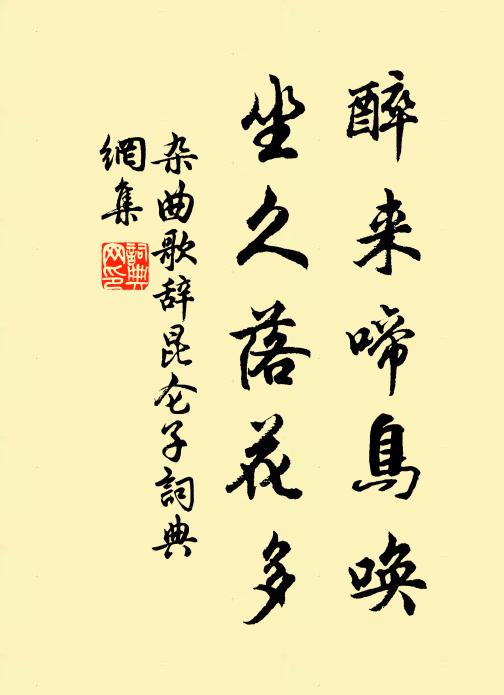 醉来啼鳥唤
坐久落花多
杂曲歌辞昆仑子詞典
網集
詞典
网印